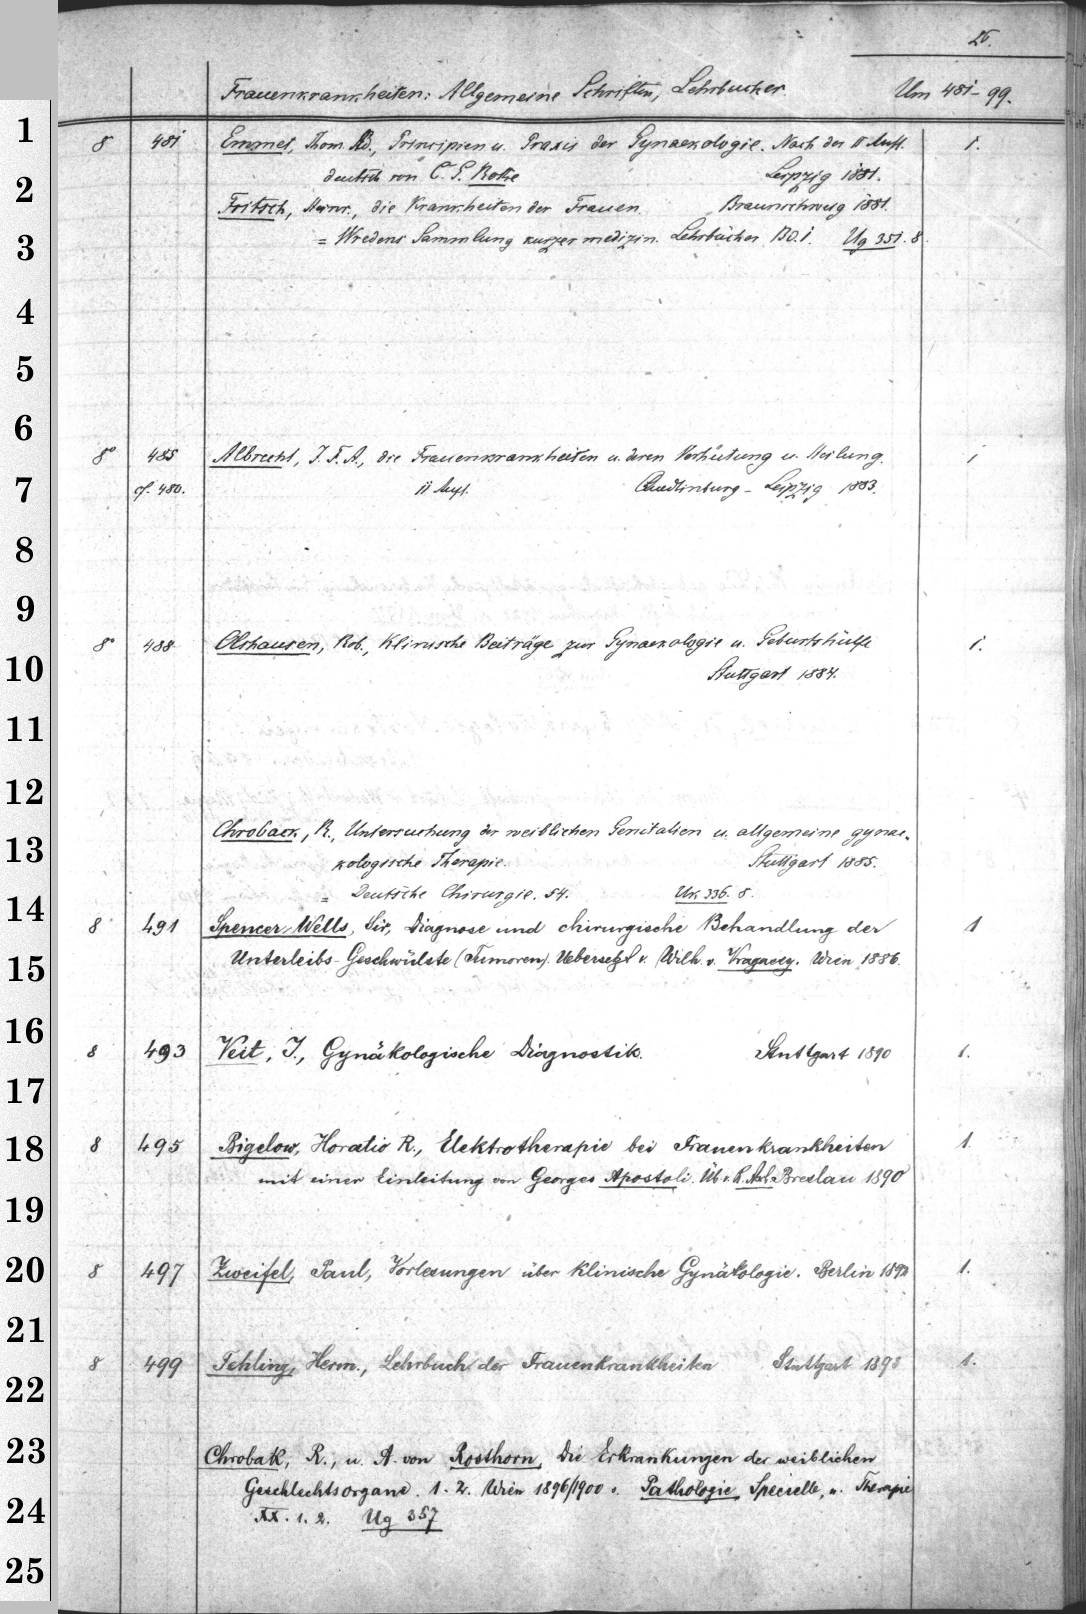 26.
Frauenkrankheiten: Allgemeine Schriften, Lehrbücher. Um 481-99.
8 481 Emmet, Thom. Ad., Principien u. Praxis der Gynaekologie. Nach der II Aufl. 1.
deutsch von C. G. Rothe Leipzig 1881.
Fritsch, Heinr., die Krankheiten der Frauen. Braunschweig 1881.
= Wredens Sammlung kurzer medizin. Lehrbücher Bd. 1. Ug 351. 8.
8° 485 Albrecht, J. F. A., die Frauenkrankheiten u. deren Verhütung u. Heilung. 1
cf. 480. 11 Aufl. Quedlinburg - Leipzig 1883.
8° 488 Olshausen, Rob., Klinische Beiträge zur Gynaekologie u. Geburtshülfe 1.
Stuttgart 1884.
Chroback, R., Untersuchung der weiblichen Genitalien u. allgemeine gynae-
kologische Therapie. Stuttgart 1885.
= Deutsche Chirurgie. 54. Uk 336. 8.
8 491 Spencer-Wells, Sir, Diagnose und chirurgische Behandlung der 1
Unterleibs-Geschwülste (Tumoren). Uebersetzt v. Wilh. v. Wien 1886.
8 493 Veit, J., Gynäkologische Diagnostik. Stuttgart 1890 1.
8 495 Bigelow, Horatio R., Elektrotherapie bei Frauenkrankheiten 1.
mit einer Einleitung von Georges Apostoli. Üb. v. R. Asch. Breslau 1890
8 497 Zweifel, Paul, Vorlesungen über klinische Gynäkologie. Berlin 1892 1.
8 499 Fehling, Herm., Lehrbuch der Frauenkrankheiten Stuttgart 1893 1.
Chrobak, R., u. A. von Rosthorn, Die Erkrankungen der weiblichen
Geschlechtsorgane. 1. 2. Wien 1896/1900 = Pathologie, Specielle, u. Therapie
XX. 1. 2. Ug 357
1
2
3
4
5
6
7
8
9
10
11
12
13
14
15
16
17
18
19
20
21
22
23
24
25